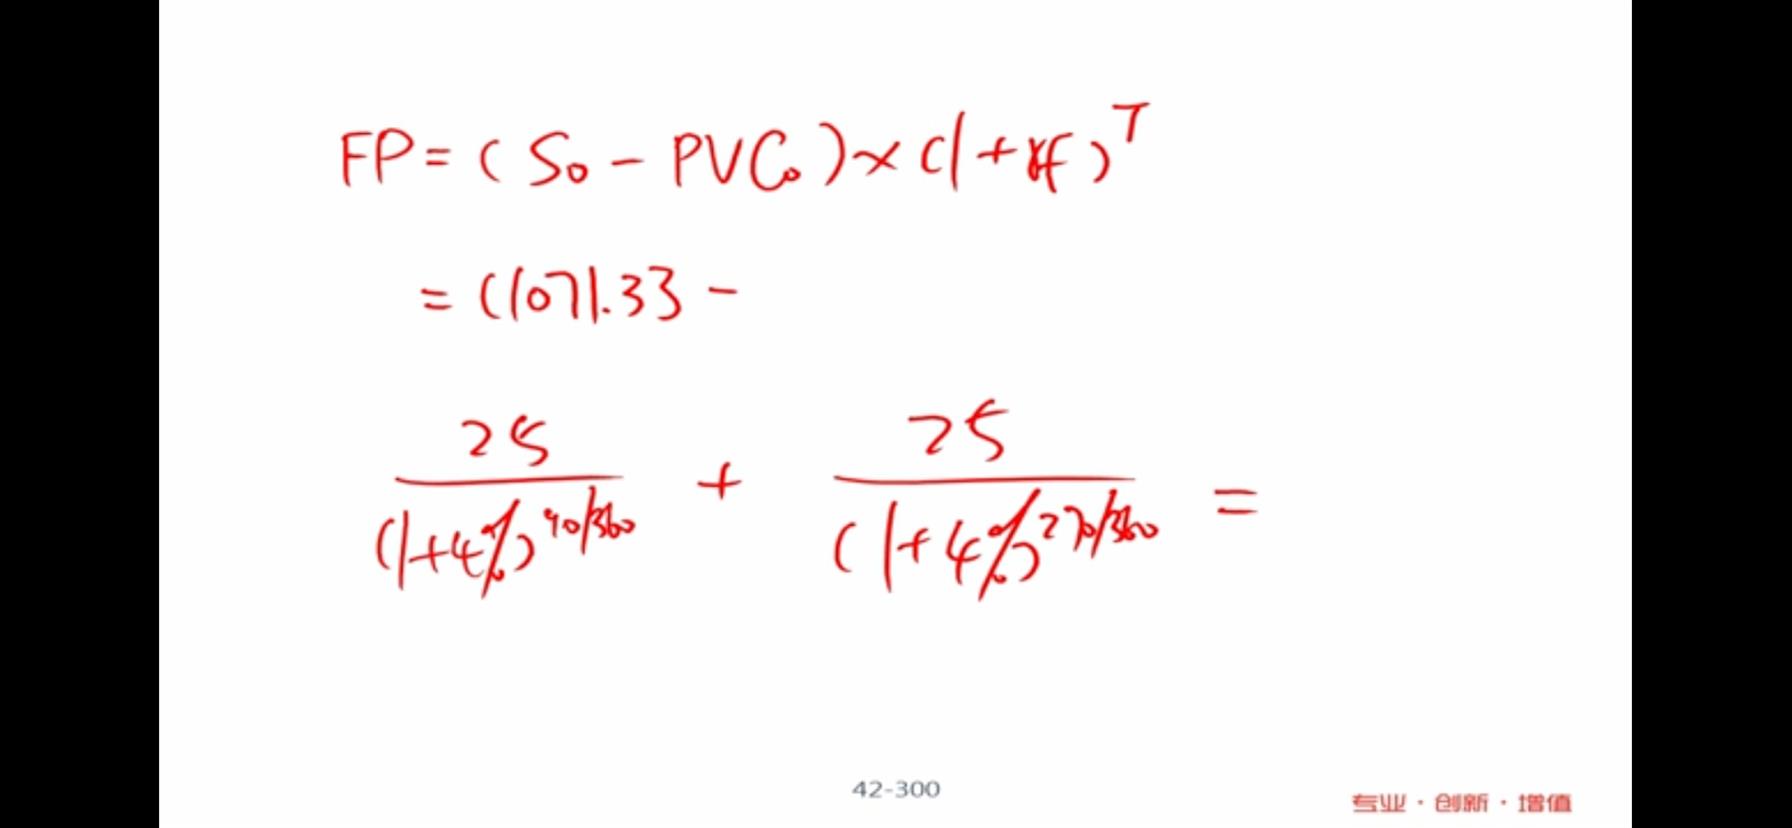 FP = (S₀ - PVC₀) × (1 + rf)ᵀ
= (1071.33 -
25/(1+4%)^90/360 + 25/(1+4%)^270/360 =
42-300
专业 · 创新 · 增值